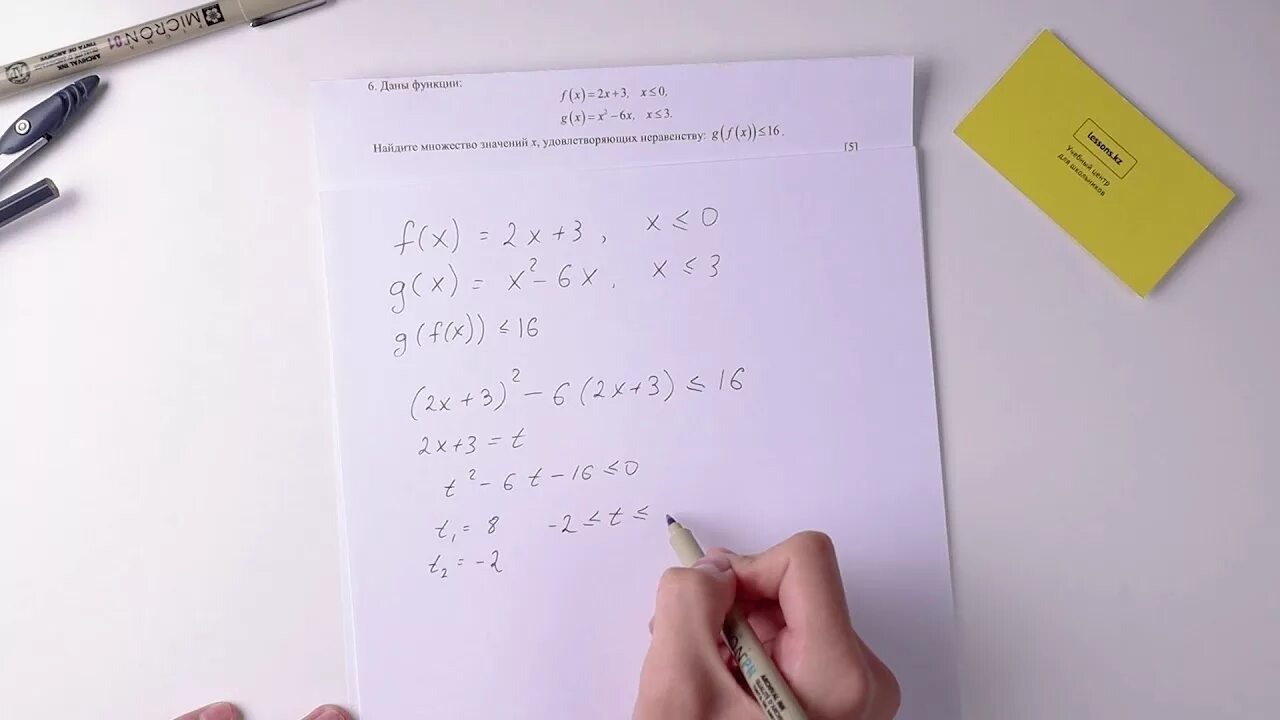 MICRON 01
ARCHIVAL INK
TINTA DE ARCHIVE
6. Даны функции:
f(x)=2x+3, x≤0,
g(x)=x²−6x, x≤3.
Найдите множество значений x, удовлетворяющих неравенству: g(f(x))≤16.
[5]
lessons.kz
Учебный центр
для школьников
f(x) = 2x+3, x ≤ 0
g(x) = x²−6x, x ≤ 3
g(f(x)) ≤ 16
(2x+3)² − 6(2x+3) ≤ 16
2x+3 = t
t² − 6t − 16 ≤ 0
t₁ = 8 -2 ≤ t ≤
t₂ = -2